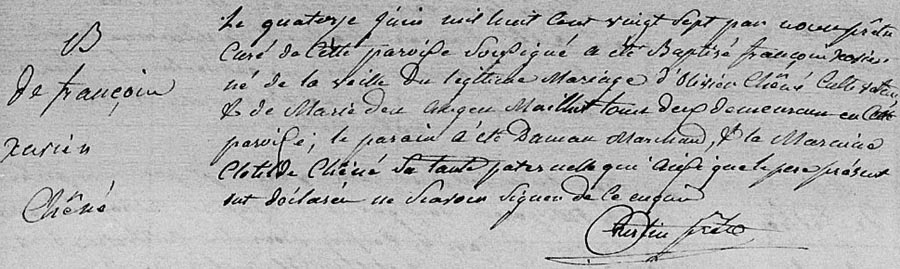 B
de françoin
xavien
Chêné
Le quatorze juin mil huit cent vingt sept par nous prêtre
Curé de Cette paroisse Soussigné a été Baptisé françoin xavien
né de la veille du légitime Mariage d'Olivien Chêné Cultivateur
& de Marie den Angen Maillut tous deux demeuran en Cette
paroisse; le parain a été Daman Marchand, & la Maraine
Clotilde Chêné Sa tante paternelle qui ainsi que le pere présent
ont déclarés ne Savoir Signer de Ce enquis
prêtre